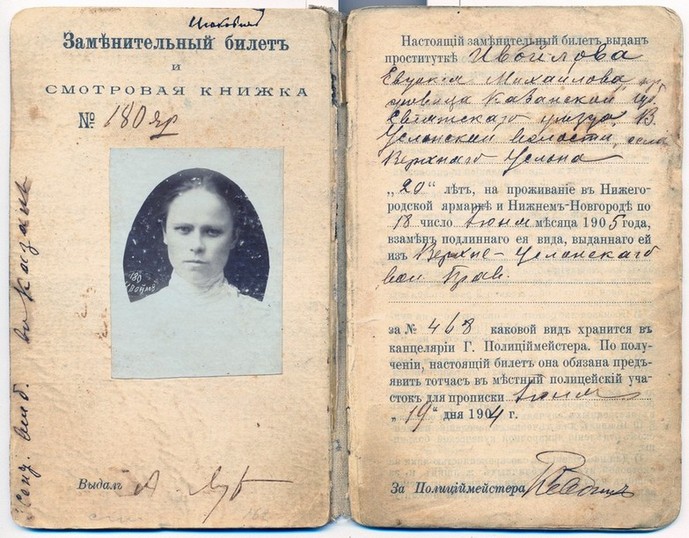 Замѣнительный билетъ
и
СМОТРОВАЯ КНИЖКА
№ 180 яр
180
Выдалъ
Настоящій замѣнительный билетъ выданъ
проституткѣ Ивойлова
Евдокія Михайлова
Казанской губ.
уѣзда, В.
Услонской волости, села
Верхняго Услона
„20“ лѣтъ, на проживаніе въ Нижего-
родской ярмаркѣ и Нижнемъ-Новгородѣ по
18 число Іюня мѣсяца 1905 года,
взамѣнъ подлиннаго ея вида, выданнаго ей
изъ Верхне-Услонскаго
вол. Прав.
за № 468 каковой видъ хранится въ
канцеляріи Г. Полиціймейстера. По полу-
ченіи, настоящій билетъ она обязана предъ-
явить тотчасъ въ мѣстный полицейскій уча-
стокъ для прописки Іюня
„19“ дня 1904 г.
За Полиціймейстера